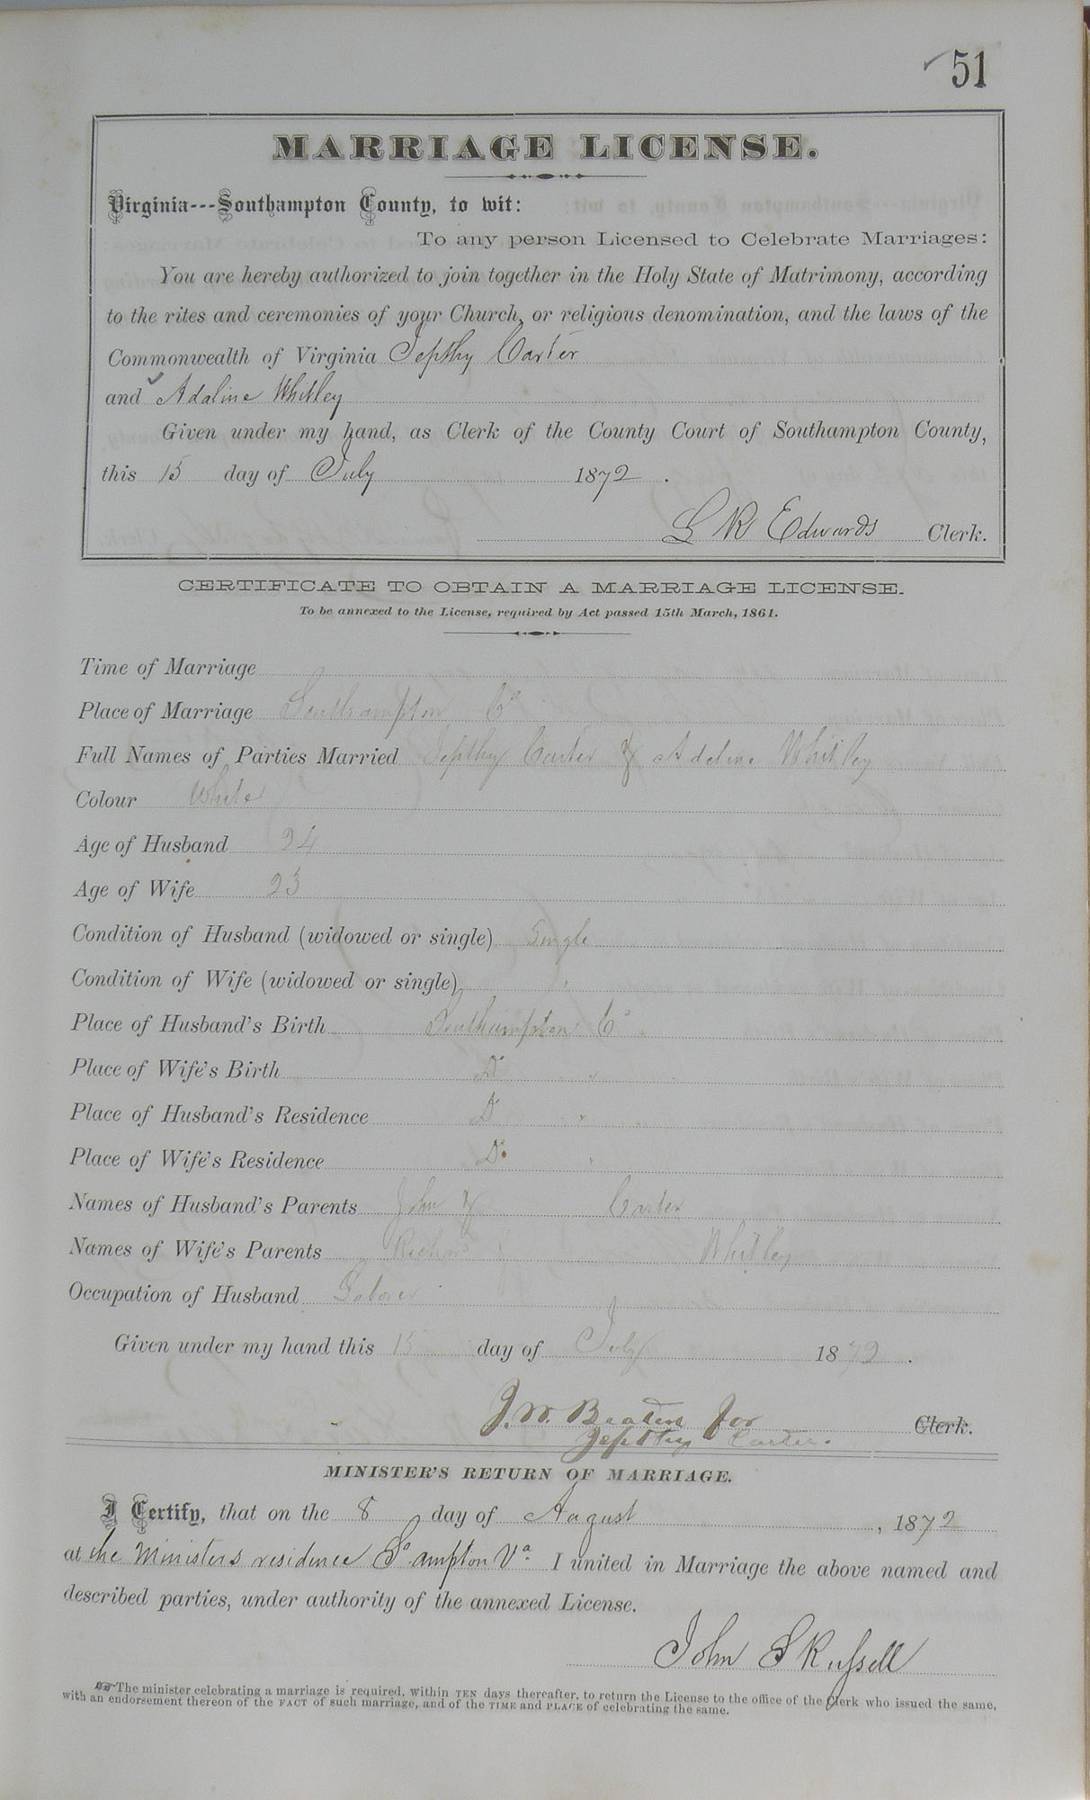 51
MARRIAGE LICENSE.
Virginia---Southampton County, to wit:
To any person Licensed to Celebrate Marriages:
You are hereby authorized to join together in the Holy State of Matrimony, according
to the rites and ceremonies of your Church, or religious denomination, and the laws of the
Commonwealth of Virginia Jepthy Carter
and Adaline Whitley
Given under my hand, as Clerk of the County Court of Southampton County,
this 15 day of July 1872.
L R Edwards Clerk.
CERTIFICATE TO OBTAIN A MARRIAGE LICENSE.
To be annexed to the License, required by Act passed 15th March, 1861.
Time of Marriage
Place of Marriage Southampton Co
Full Names of Parties Married Jepthy Carter & Adaline Whitley
Colour White
Age of Husband 24
Age of Wife 23
Condition of Husband (widowed or single) Single
Condition of Wife (widowed or single) "
Place of Husband's Birth Southampton Co
Place of Wife's Birth Do "
Place of Husband's Residence Do "
Place of Wife's Residence Do "
Names of Husband's Parents John & Carter
Names of Wife's Parents Richd Whitley
Occupation of Husband Laborer
Given under my hand this 15 day of July 1872.
J. W. Beaten for Clerk.
Jepthy Carter.
MINISTER'S RETURN OF MARRIAGE.
I Certify, that on the 8 day of August, 1872
at the Ministers residence So ampton Va. I united in Marriage the above named and
described parties, under authority of the annexed License.
John S Russell
The minister celebrating a marriage is required, within TEN days thereafter, to return the License to the office of the Clerk who issued the same,
with an endorsement thereon of the FACT of such marriage, and of the TIME and PLACE of celebrating the same.